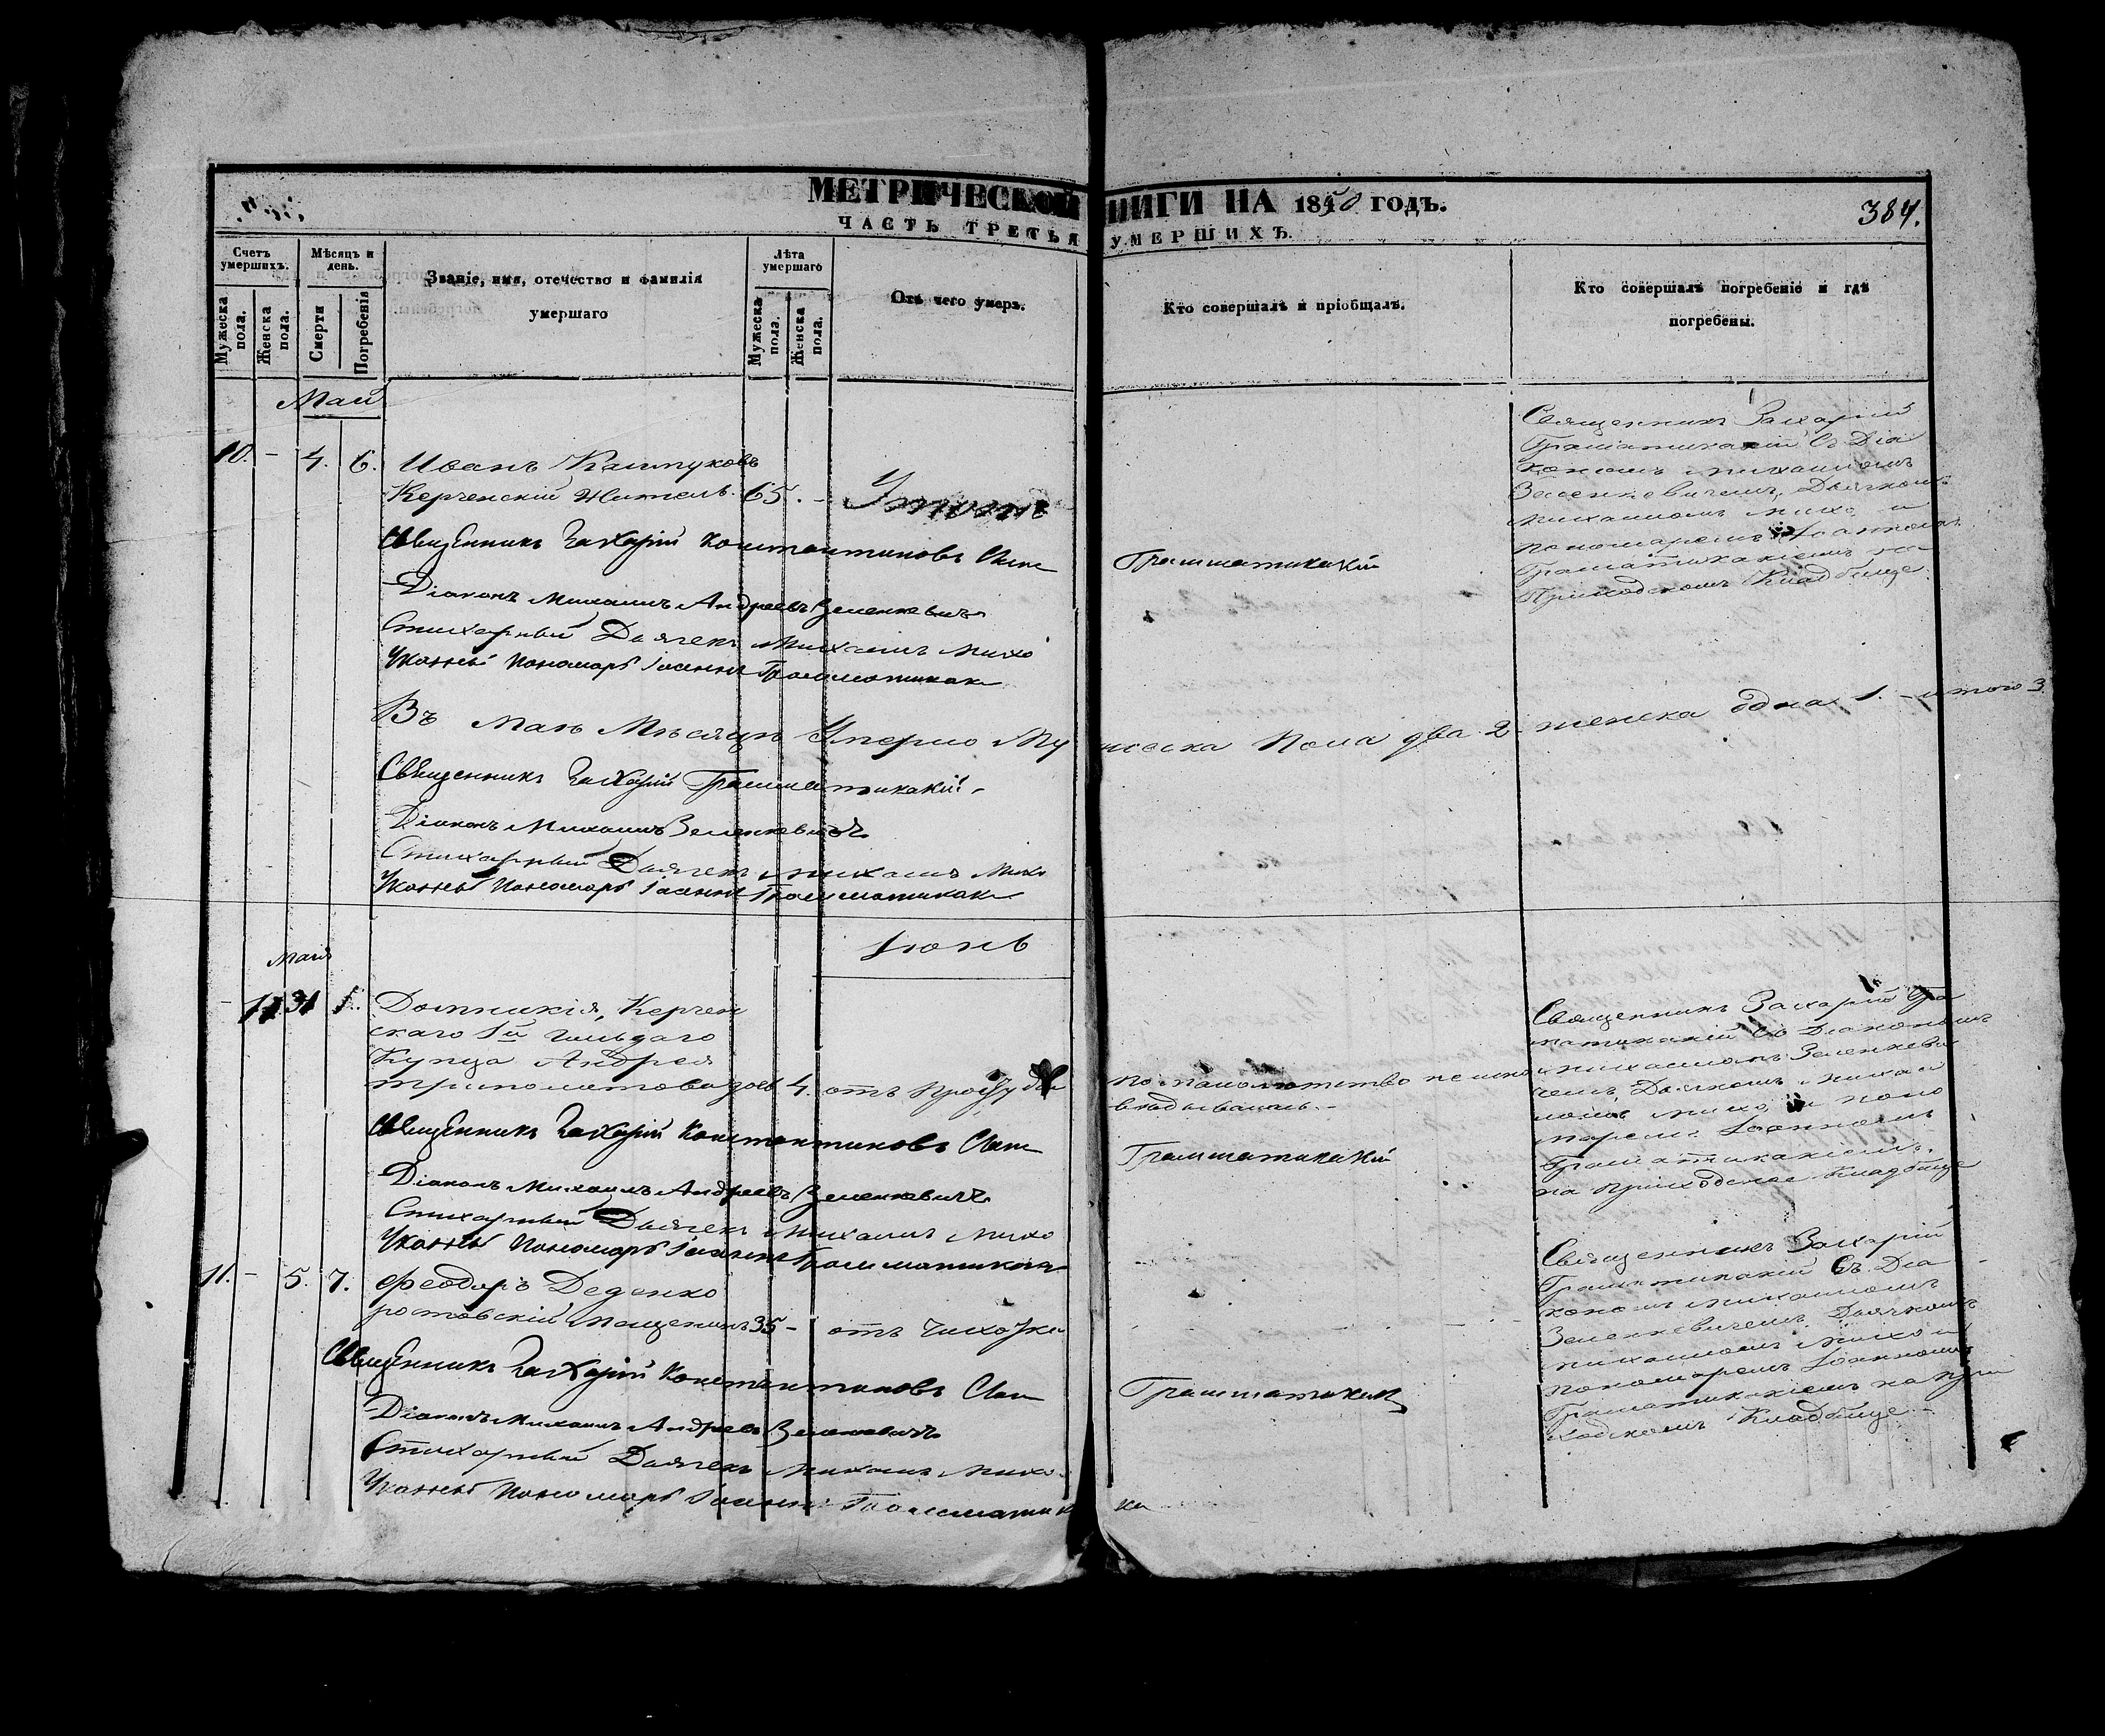 МЕТРИЧЕСКОЙ КНИГИ НА 1850 ГОДЪ.
384.
ЧАСТЬ ТРЕТЬЯ УМЕРШИХЪ.
Счетъ умершихъ.
Мужеска пола.
Женска пола.
Мѣсяцъ и день.
Смерти
Погребенія
Званіе, имя, отечество и фамилія
умершаго
Лѣта умершаго
Мужеска пола.
Женска пола.
Отъ чего умеръ.
Кто совершалъ и пріобщалъ.
Кто совершалъ погребеніе и гдѣ
погребены.
Май
10. - 4. 6. Иванъ
Керченскій Житель. 65. -
Священникъ Захарій Константиновъ Сынъ Грамматикакій
Діаконъ Михаилъ Андреевъ Зеленкевичъ
Стихарный Дьячекъ Михаилъ Михо
Указный Пономарь Іоаннъ Грамматикаки
Священникъ Захарій
Граматикакій Съ Діа
кономъ Михаиломъ
Зеленкевичемъ, Дьячкомъ
Михаиломъ Михо, и
пономаремъ Іоанномъ
Граматикакіемъ на
Приходскомъ Кладбище.
Въ Маѣ Мѣсяцѣ Умерло Мужеска Пола два 2. женска одна 1. - итого 3
Священникъ Захарій Грамматикакій
Діаконъ Михаилъ Зеленкевичъ
Стихарный Дьячекъ Михаилъ Михо
Указный Пономарь Іоаннъ Грамматикаки
Іюнь
Мая
- 11. 31 1. Домникія, Керчен
скаго 1й Гильдаго
Купца Андрея
4. отъ простуды по малолѣтству не
Священникъ Захарій Константиновъ Сынъ Грамматикакій
Діаконъ Михаилъ Андреевъ Зеленкевичъ
Стихарный Дьячекъ Михаилъ Михо
Указный Пономарь Іоаннъ Грамматикаки
Священникъ Захарій Гра
матикакій Съ Діакономъ
Михаиломъ Зеленкеви
чемъ, Дьячкомъ Михаи
ломъ Михо, и поно
маремъ Іоанномъ
Граматикакіемъ.
на приходское Кладбище
11. - 5. 7. Феодоръ Деденко
ростовскій Мещанинъ 35 - отъ Чахотки
Священникъ Захарій Константиновъ Сынъ Грамматикакій
Діаконъ Михаилъ Андреевъ Зеленкевичъ
Стихарный Дьячекъ Михаилъ Михо
Указный Пономарь Іоаннъ Грамматикаки
Священникъ Захарій
Граматикакій Съ Діа
кономъ Михаиломъ
Зеленкевичемъ, Дьячкомъ
Михаиломъ Михо и
пономаремъ Іоанномъ
Граматикакіемъ на При
ходскомъ Кладбище